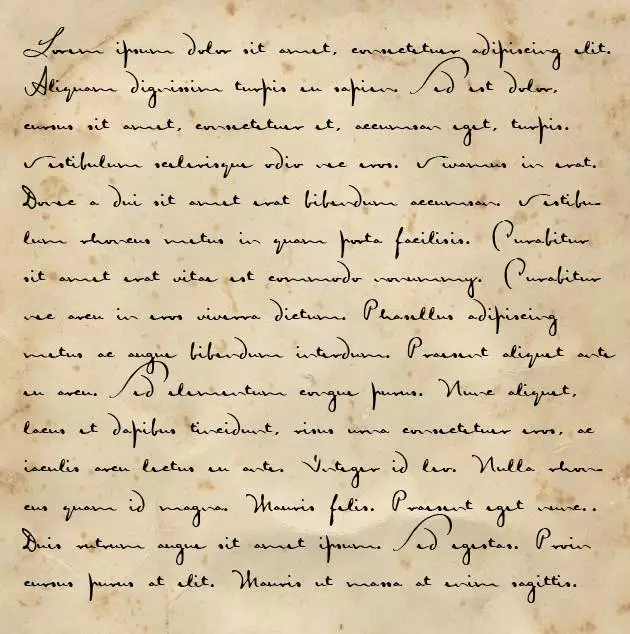 Lorem ipsum dolor sit amet, consectetuer adipiscing elit.
Aliquam dignissim turpis eu sapien. Sed est dolor,
cursus sit amet, consectetuer et, accumsan eget, turpis.
Vestibulum scelerisque odio nec eros. Vivamus in erat.
Donec a dui sit amet erat bibendum accumsan. Vestibu-
lum rhoncus metus in quam porta facilisis. Curabitur
sit amet erat vitae est commodo nonummy. Curabitur
nec arcu in eros viverra dictum. Phasellus adipiscing
metus ac augue bibendum interdum. Praesent aliquet ante
eu arcu. Sed elementum congue purus. Nunc aliquet,
lacus et dapibus tincidunt, risus urna consectetuer eros, ac
iaculis arcu lectus eu ante. Integer id leo. Nulla rhon-
cus quam id magna. Mauris felis. Praesent eget nunc..
Duis rutrum augue sit amet ipsum. Sed egestas. Proin
cursus purus at elit. Mauris ut massa at enim sagittis.